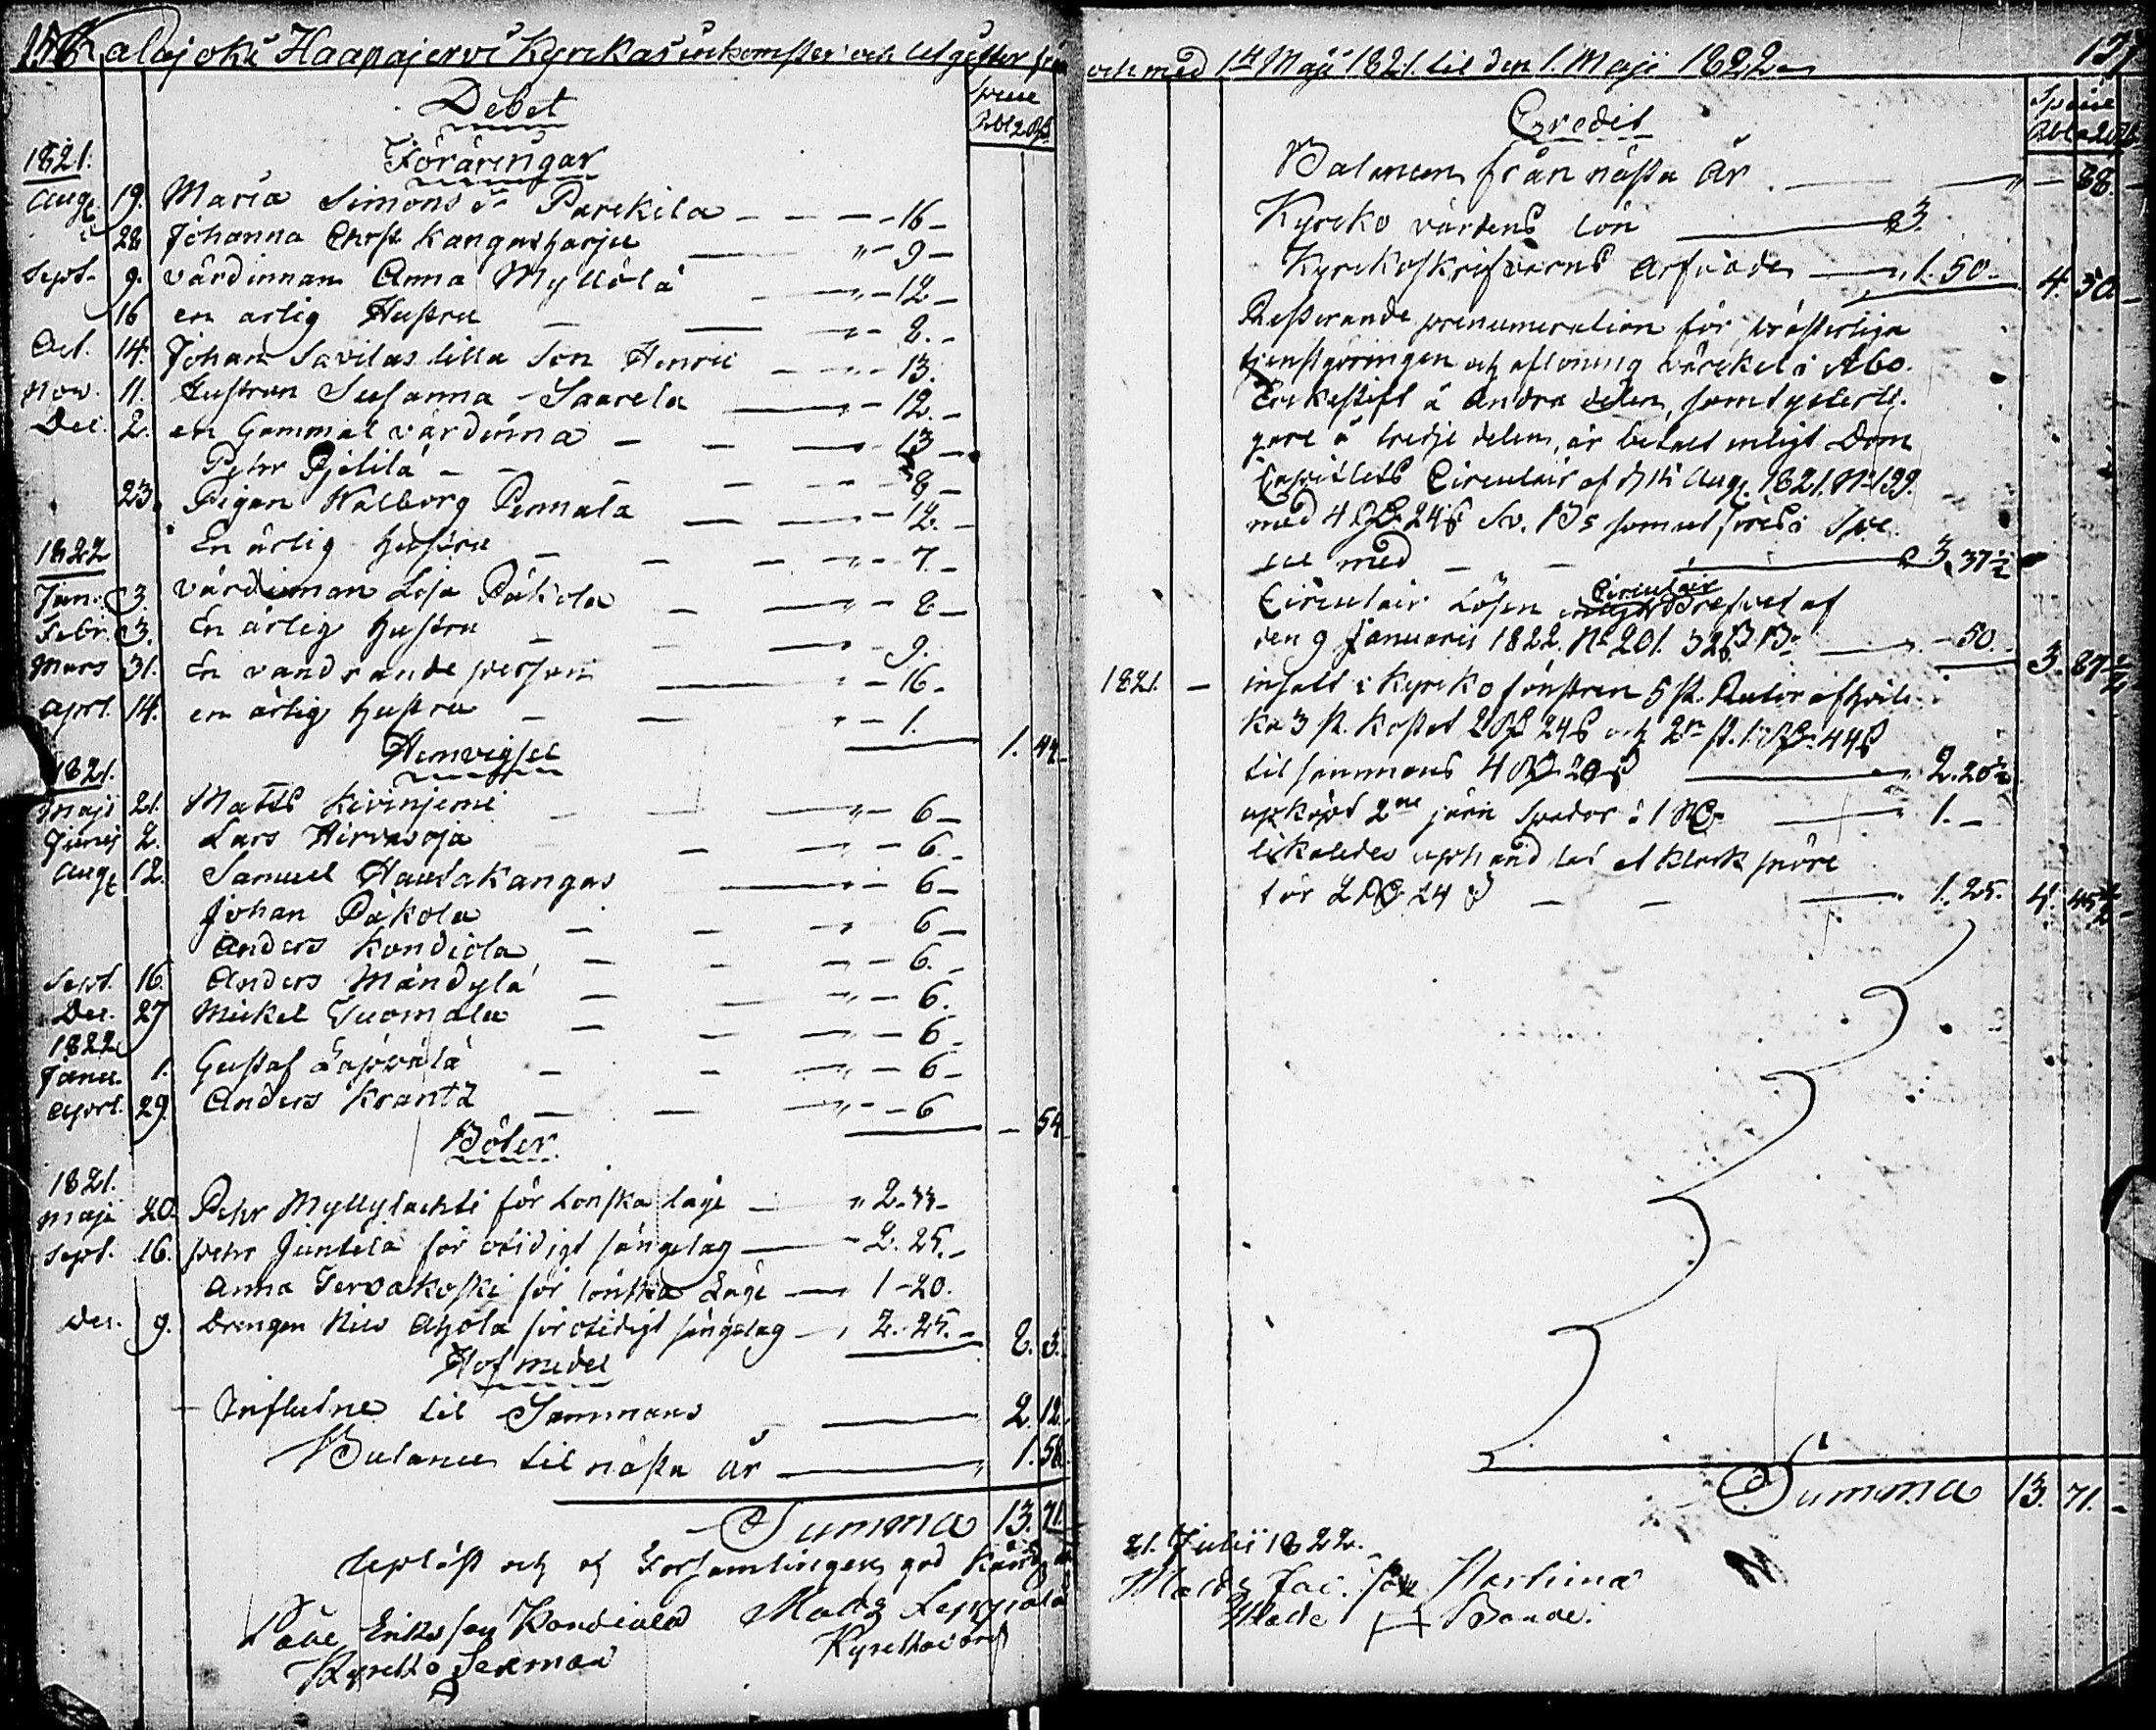 Kalajoki Haapajervi Kyrckas inkomster och Utgifter från
Debet
Föräringar
1821.
Aug. 19. Maria Simons dr Parckila - - - 16 -
28 Johanna Chrst. Kangasharju " - 9 -
Sept. 9. värdinnan Anna Myllölä - 12 -
16 en ärlig Hustru - 8. -
Oct. 14. Johan Savilas lilla Son Henric - 13.
Nov. 11. Hustrun Susanna Saarela - 12. -
Dec. 2. en Gammal värdinna - 13 -
Pehr Pjetilä - 8 -
23. Pigan Walborg Permala - 12. -
En ärlig hustru - 7. -
1822
Jan. 3. värdinnan Lisa Päkola - 8 -
Febr. 3. En ärlig hustru - 9.
Mars 31. En vandrande person - 16 -
Aprl. 14. en ärlig hustru - 1. 1. 44 -
Hemvigsel
1821.
Maji 21. Matts Kivinjemi - 6 -
Junij 2. Lars Hirvasoja - 6. -
Aug. 12. Samuel Hautakangas - 6 -
Johan Päkola - 6 -
Anders Kondiola - 6. -
Sept. 16. Anders Mändylä - 6.
Dec. 27 Mickel Tuomala - 6 -
1822
Janu. 1. Gustaf Lappälä - 6 -
Aprl. 29. Anders Krantz - 6 - 54
Böter
1821.
Maji 20. Pehr Myllylachti för Lönska läge " 2. 33 -
Sept. 16. Pehr Juntila för otidigt sängelag - 2. 25. -
Anna Tervakoski för lönska Läge - 1 - 20.
Dec. 9. Drengen Nils Ahola för otidigt sängelag - 2. 25. - 8. 3.
Hof medel
Influtne til Sammans 2. 12.
Balance til nästa år 1. 58.
Summa 13. 71.
Upläst och af Församlingen god känd
Påhl Eriksson Kondiola Mats Leppälä
Kyrcko Sexman Kyrckovärd
och med 1st Maji 1821. til den 1. Maji 1822
Credit
Balancen från nästa år - 88. -
Kyrcko värdens lön 3.
Kyrckoskrifvarens arfvode 1. 50 - 4. 50. -
Resterande prenumeration för prästerliga
tjenstgöringen och aflöning värcket i Åbo
Erckestift å Andra delen, samt ytterli-
gare å tredje delen, är betalt enligt Dom
Capitlets Circulair af d 14 Aug. 1821. No 199.
med 4 Rd 24 s Sv. Bo som
med 3. 37 1/2
Circulair Lösen Circulair brefvet af
den 9 Januarii 1822. No 201. 32 s Bo - 50. 3. 87 1/2
1821. - insatt i Kyrcko fönstren 5 st. Rutor af hvil-
ka 3 st. kostat 2 Rd 24 s och 2ne st. 1 Rd 44 s
til sammans 4 Rd 20 s 2. 20 1/2
upköpt 2ne järn Spador à 1 Rd - 1. -
likaledes uphandlat et klock snöre
för 2 Rd 24 s - 1. 25. 4. 45 1/2
Summa 13. 71. -
21. Julii 1822.
Matts Jac. son Marlina
Bonde.